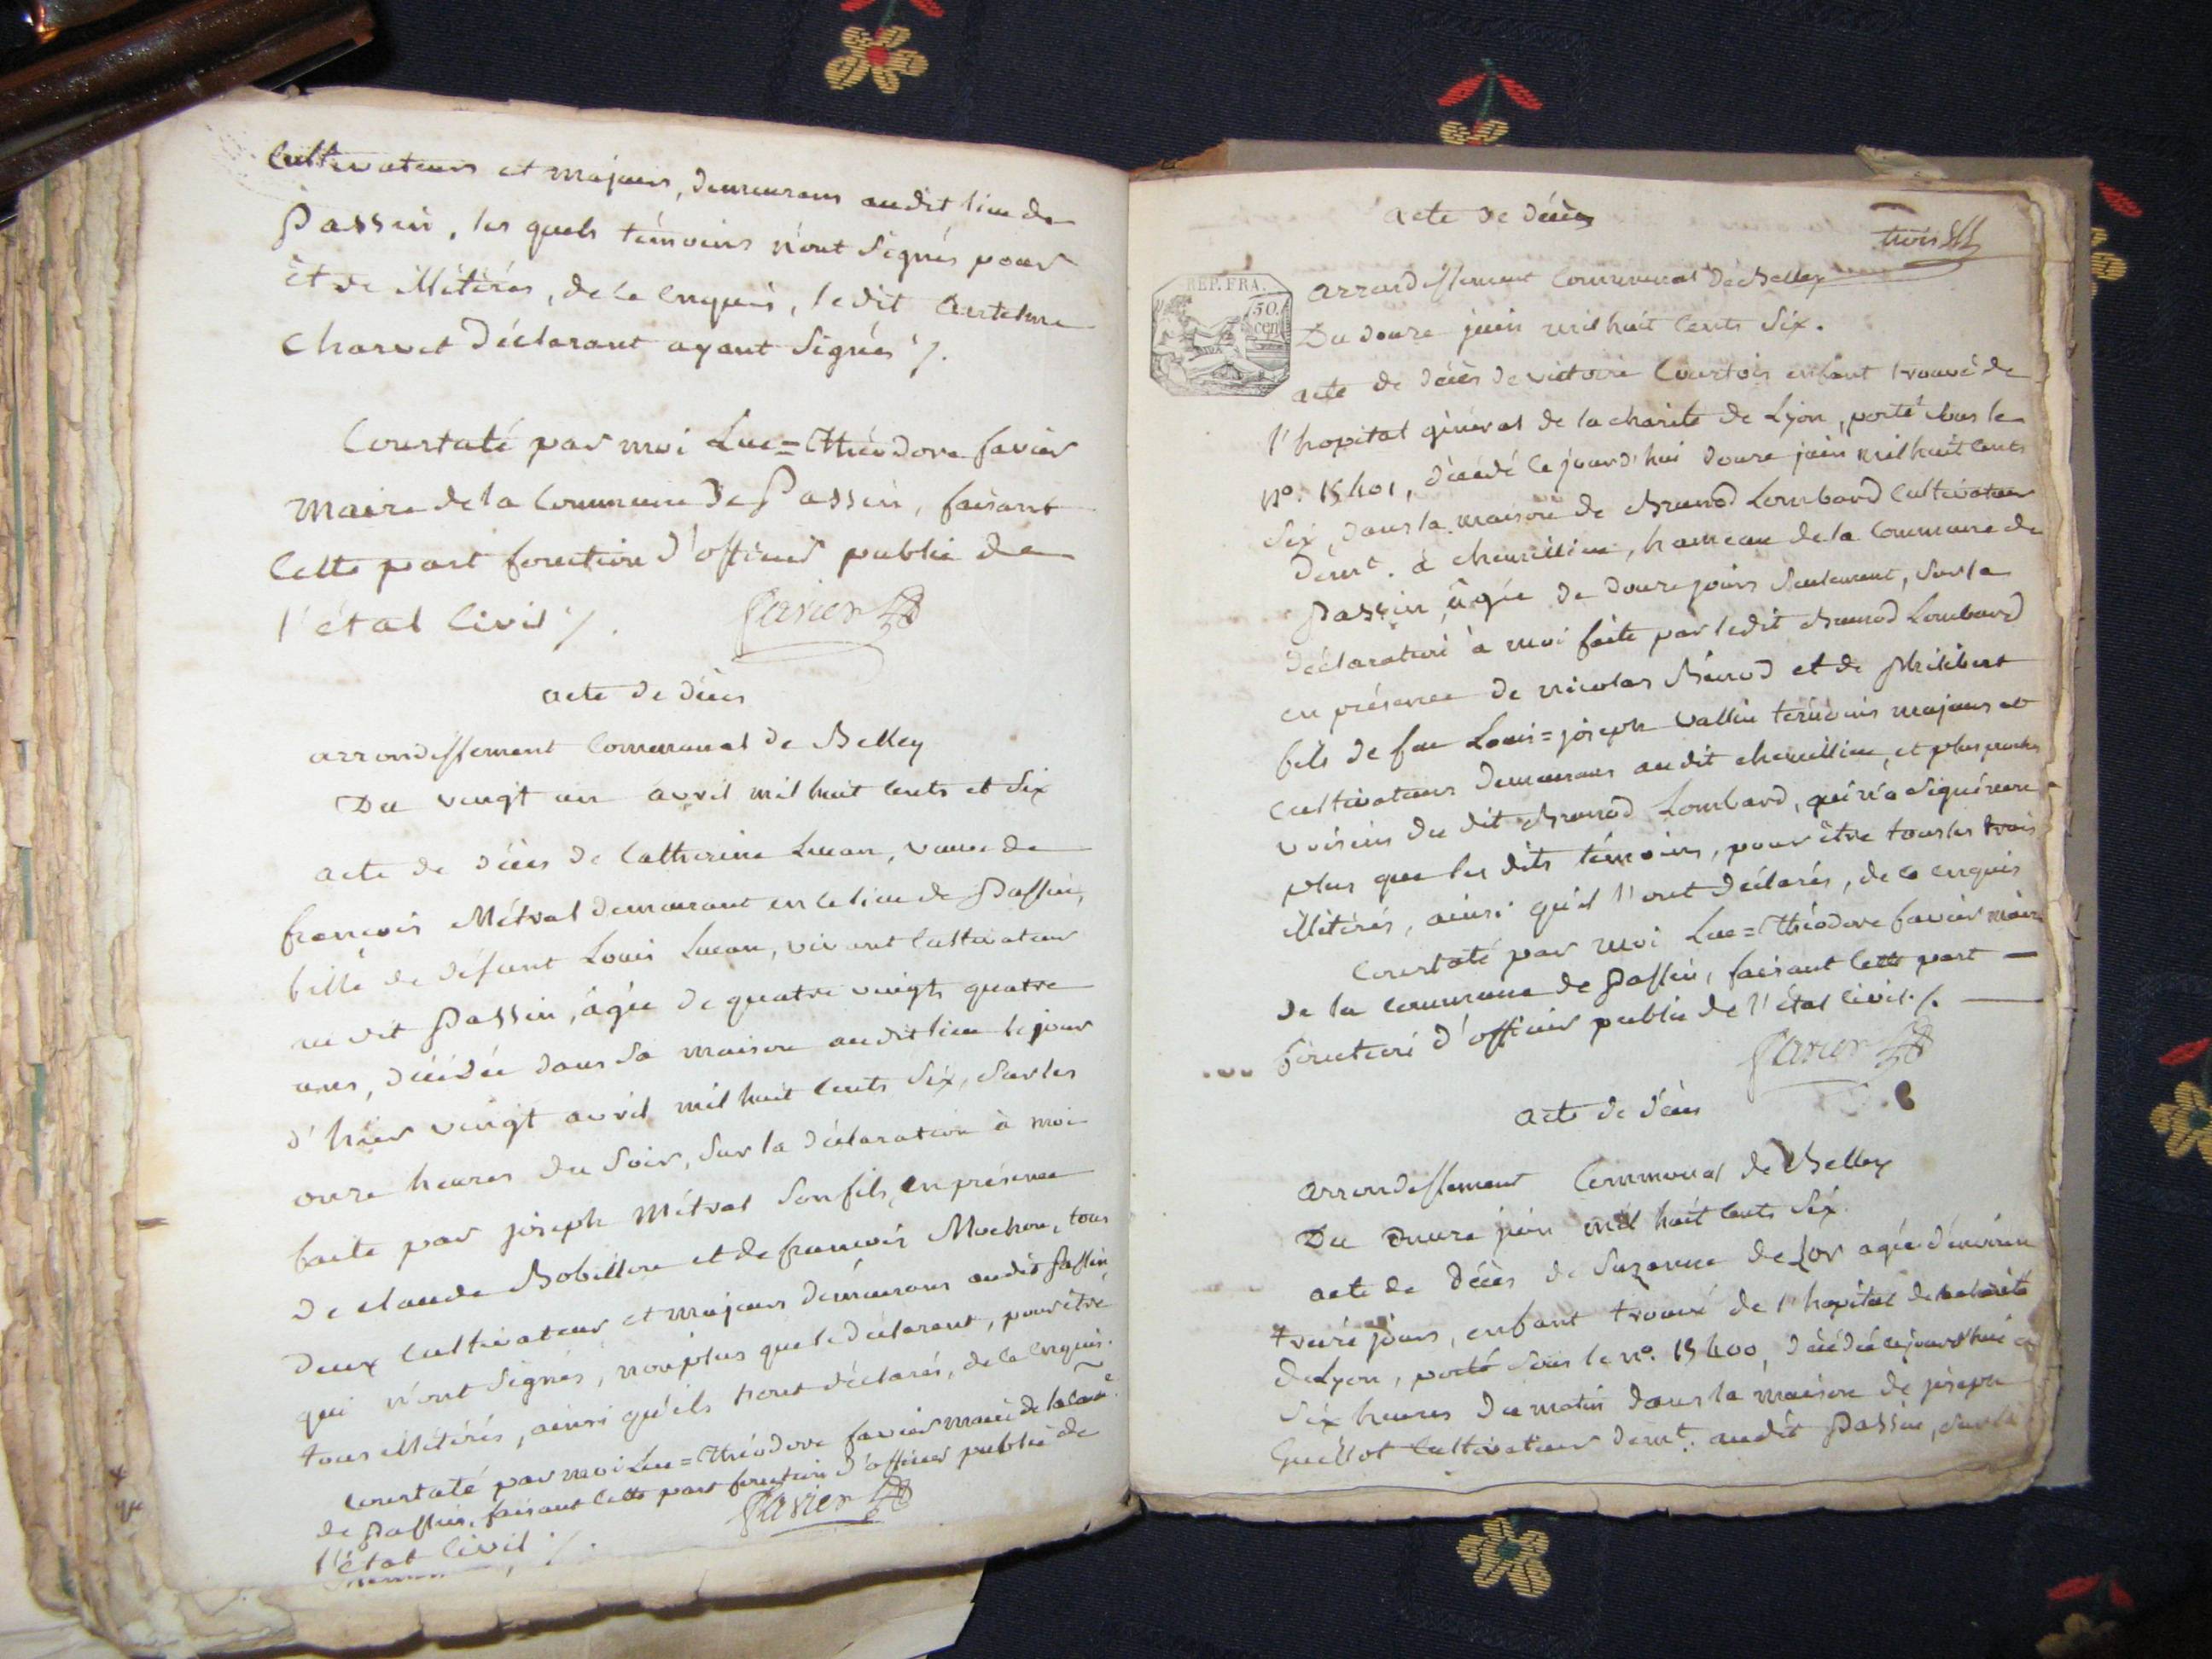 Cultivateurs et majeurs, demeurans audit lieu de
Passin, les quels témoins n'ont signés pour
et de illitérés, de ce enquis, le dit Antelme
Charvet déclarant ayant signés ./.
Constaté par moi Luc=Théodore favier
maire de la Commune de Passin, faisant
cette part fonction d'officier public de
l'état civil ./.
favier
acte de décès
arrondissement communal de Belley
Du vingt un avril mil huit cents et six
acte de décès de Catherine Lucan, veuve de
françois Métral demeurant en ce lieu de Passin,
fille de défunt Louis Lucan, vivant cultivateur
au dit Passin, âgée de quatre vingts quatre
ans, décédée dans sa maison audit lieu le jour
d'hier vingt avril mil huit cents six, sur les
onze heures du soir, sur la déclaration à moi
faite par joseph Métral son fils, en présence
de claude Bobillon et de françois Mochon, tous
deux cultivateurs et majeurs demeurans audit Passin,
qui n'ont signés, non plus que le déclarant, pour être
tous illitérés, ainsi qu'ils l'ont déclarés, de ce enquis.
Constaté par moi Luc=Théodore favier maire de la com.e
de Passin, faisant cette part fonction d'officier public de
l'état civil ./.
favier
acte de décès
trois
REP. FRA.
50
cen
arrondissement communal de Belley
Du douze juin mil huit cents six.
acte de décès de victoire Courtois enfant trouvé de
l'hopital général de la charité de Lyon, porté sous le
n°. 15401, décédé ce jourd'hui douze juin mil huit cents
six, dans la maison de Brunod Lombard cultivateur
demt. à chemillieu, hameau de la commune de
Passin, âgée de douze jours seulement, sur la
déclaration à moi faite par ledit Brunod Lombard
en présence de nicolas Bénod et de Philibert
fils de feu Louis=joseph Vallin témoins majeurs et
cultivateurs demeurans au dit chemillieu, et plus proches
voisins du dit Brunod Lombard, qui n'a signé non
plus que les dits témoins, pour être tous les trois
illitérés, ainsi qu'il l'ont déclarés, de ce enquis
Constaté par moi Luc=Théodore favier maire
de la commune de Passin, faisant cette part
fonction d'officier public de l'état civil ./.
favier
acte de décès
arrondissement Communal de Belley
Du quinze juin mil huit cents six
acte de décès de Suzanne delor agée d'environ
treize jours, enfant trouvé de l'hopital de la charité
de Lyon, porté sous le n°. 15400, décédée ce jourd'hui à
six heures du matin dans la maison de joseph
Guillot cultivateur demt. audit Passin, sur la